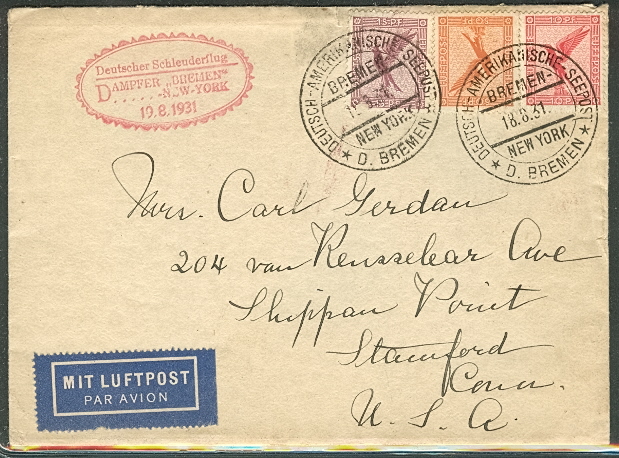 Deutscher Schleuderflug
DAMPFER „BREMEN"
. . . . . . -NEW-YORK
19.8.1931
15 PF
50 PF
10 PF
DEUTSCH-AMERIKANISCHE SEEPOST
BREMEN-
NEW YORK
★ D. BREMEN ★
DEUTSCH-AMERIKANISCHE SEEPOST
BREMEN-
18.8.31.
NEW YORK
★ D. BREMEN ★
Mrs. Carl Gerdau
204 van Rensselear Ave
Shippan Point
Stamford
Conn.
U. S. A.
MIT LUFTPOST
PAR AVION